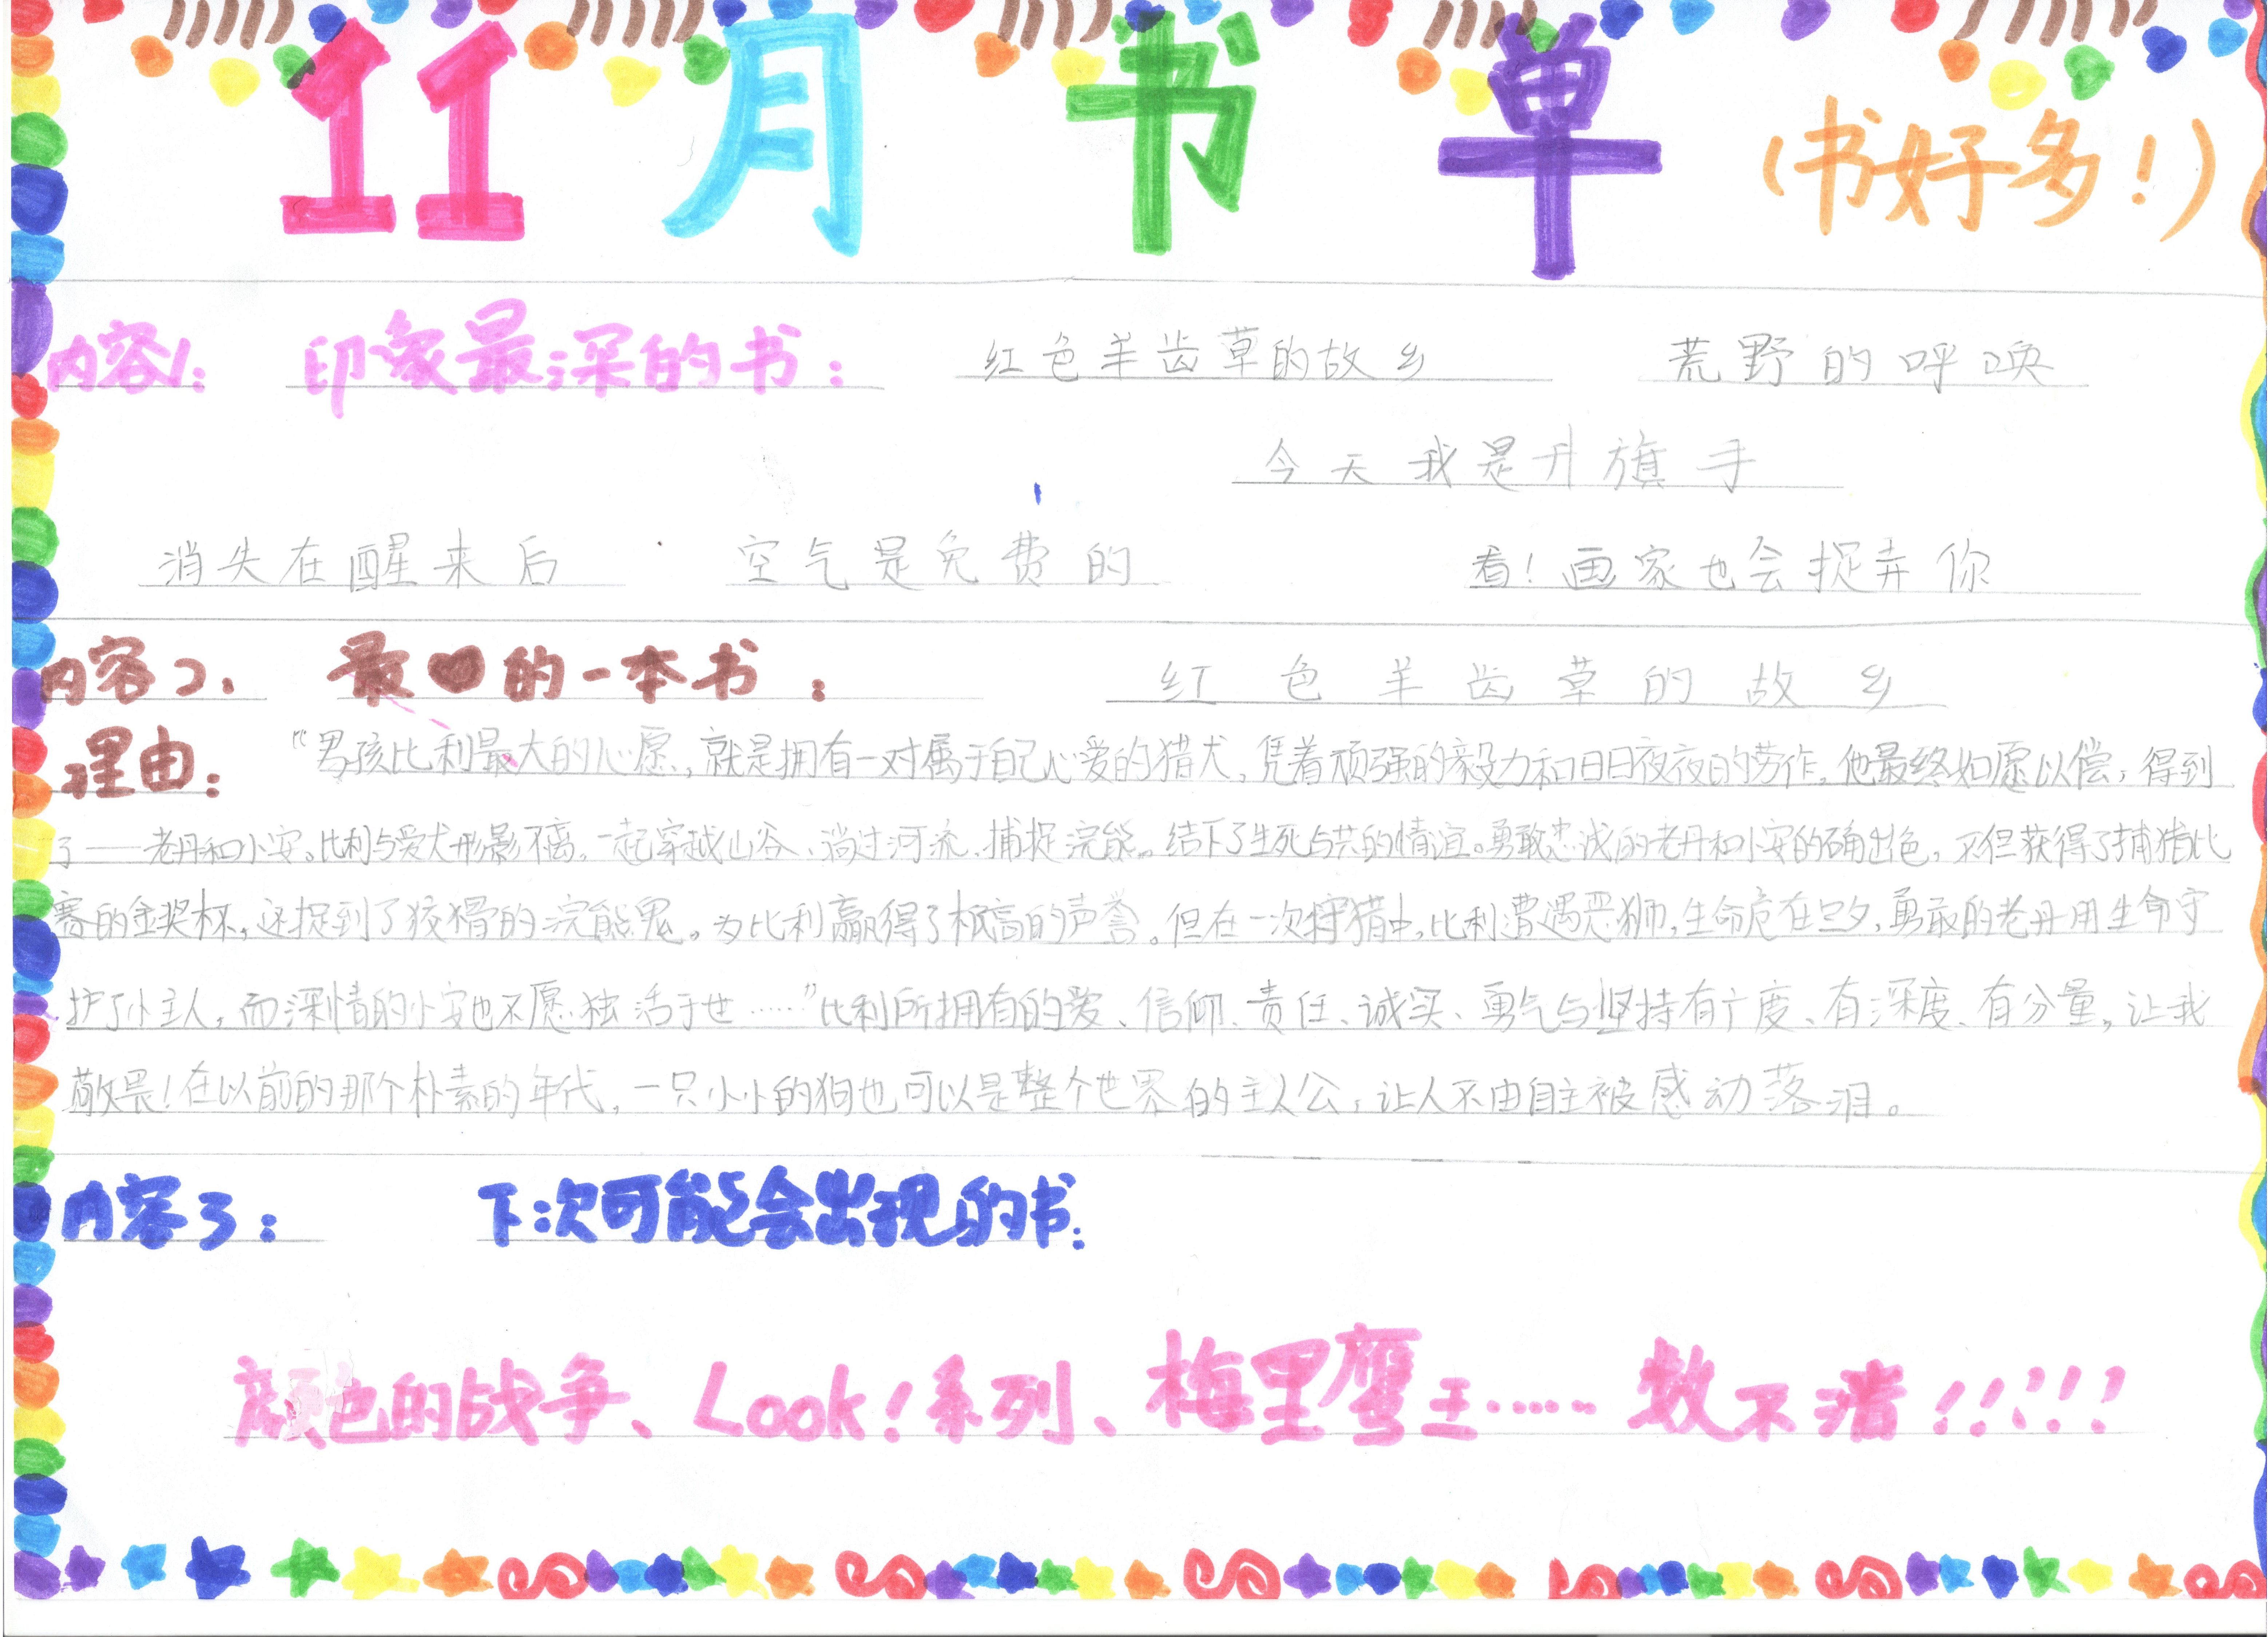 11月书单(书好多!)
内容1: 印象最深的书: 红色羊齿草的故乡 荒野的呼唤
今天我是升旗手
消失在醒来后 空气是免费的 看!画家也会捉弄你
内容2、 最♥的一本书: 红色羊齿草的故乡
理由: “男孩比利最大的心愿,就是拥有一对属于自己心爱的猎犬,凭着顽强的毅力和日日夜夜的劳作,他最终如愿以偿,得到
了——老丹和小安。比利与爱犬形影不离,一起穿越山谷、淌过河流、捕捉浣熊。结下了生死与共的情谊。勇敢忠诚的老丹和小安的确出色,不但获得了捕猎比
赛的金奖杯,还捉到了狡猾的浣熊鬼。为比利赢得了极高的声誉。但在一次狩猎中,比利遭遇恶狮,生命危在旦夕,勇敢的老丹用生命守
护了小主人,而深情的小安也不愿独活于世……”比利所拥有的爱、信仰、责任、诚实、勇气与坚持有广度、有深度、有分量,让我
敬畏!在以前的那个朴素的年代,一只小小的狗也可以是整个世界的主人公,让人不由自主被感动落泪。
内容3: 下次可能会出现的书:
颜色的战争、Look!系列、梅里鹰王……数不清!!!!!